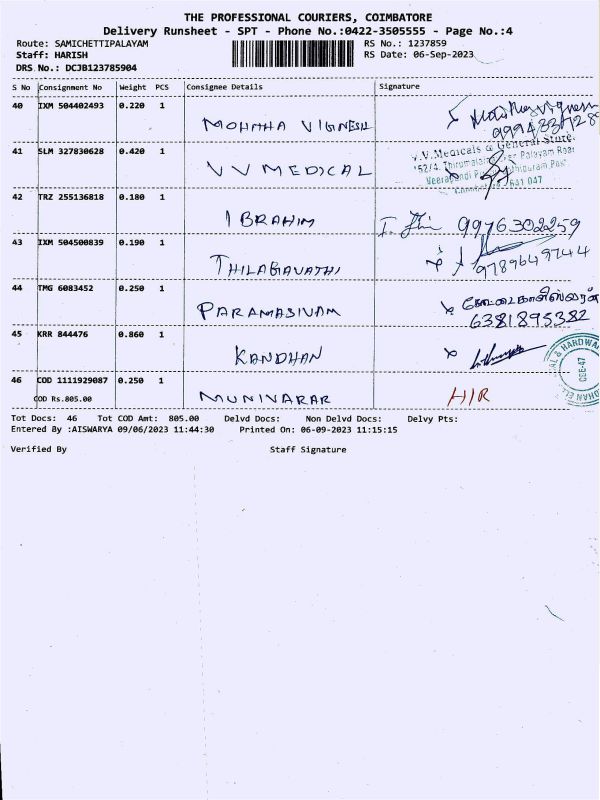 THE PROFESSIONAL COURIERS, COIMBATORE
Delivery Runsheet - SPT - Phone No.:0422-3505555 - Page No.:4
Route: SAMICHETTIPALAYAM RS No.: 1237859
Staff: HARISH RS Date: 06-Sep-2023
DRS No.: DCJB123785904
S No Consignment No Weight PCS Consignee Details Signature
40 IXM 504402493 0.220 1
MOHTHA VIGNESH
41 SLM 327830628 0.420 1
V V MEDICAL
V.V.Medicals & General Store.
42 TRZ 255136818 0.180 1
IBRAHIM 9976302259
43 IXM 504500839 0.190 1
THILAGAVATHI 9789649744
44 TMG 6083452 0.250 1
PARAMASIVAM 6381895382
45 KRR 844476 0.860 1
KANDHAN
46 COD 1111929087 0.250 1
COD Rs.805.00 MUNIVARAR H/R
Tot Docs: 46 Tot COD Amt: 805.00 Delvd Docs: Non Delvd Docs: Delvy Pts:
Entered By :AISWARYA 09/06/2023 11:44:30 Printed On: 06-09-2023 11:15:15
Verified By Staff Signature